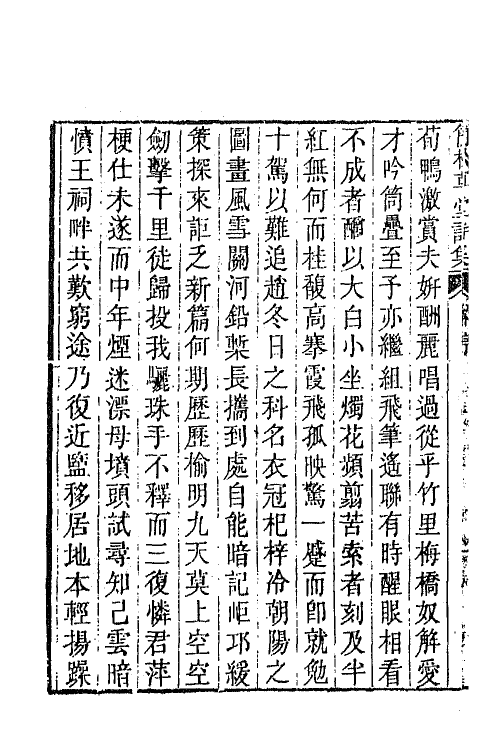 荀鴨激賞夫妍酬麗唱過從乎竹里梅橋奴解愛
才吟筒疊至予亦繼組飛筆遙聯有時醒眼相看
不成者酹以大白小坐燭花頻翦苦索者刻及半
紅無何而桂馥高搴霞飛孤映驚一蹙而卽就勉
十駕以難追趙冬日之科名衣冠杞梓泠朝陽之
圖畫風雪關河鉛槧長攜到處自能暗記岠邛緩
策探來詎乏新篇何期歷歷榆明九天莫上空空
劒擊千里徒歸投我驪珠手不釋而三復憐君萍
梗仕未遂而中年煙迷漂母墳頭試尋知己雲暗
憤王祠畔共歎窮途乃復近鹽移居地本輕揚躁